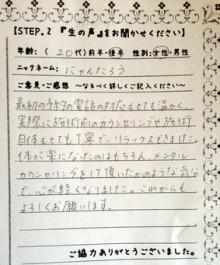 【STEP.2 『生の声』をお聞かせください】
年齢：（20代）前半・後半 性別：女性・男性
ニックネーム：にゃんたろう
ご意見・ご感想 ～なるべく詳しくご記入ください～
最初の予約の電話の対応もとても温かく、
実際に施術前のカウンセリングや施術
自体もとても丁寧で、リラックスできました。
体が楽になったのはもちろん、メンタル
カウンセリングを受け頂いたかのような気分
で、心が軽くなりました。これからも
よろしくお願いします。
ご協力ありがとうございました。